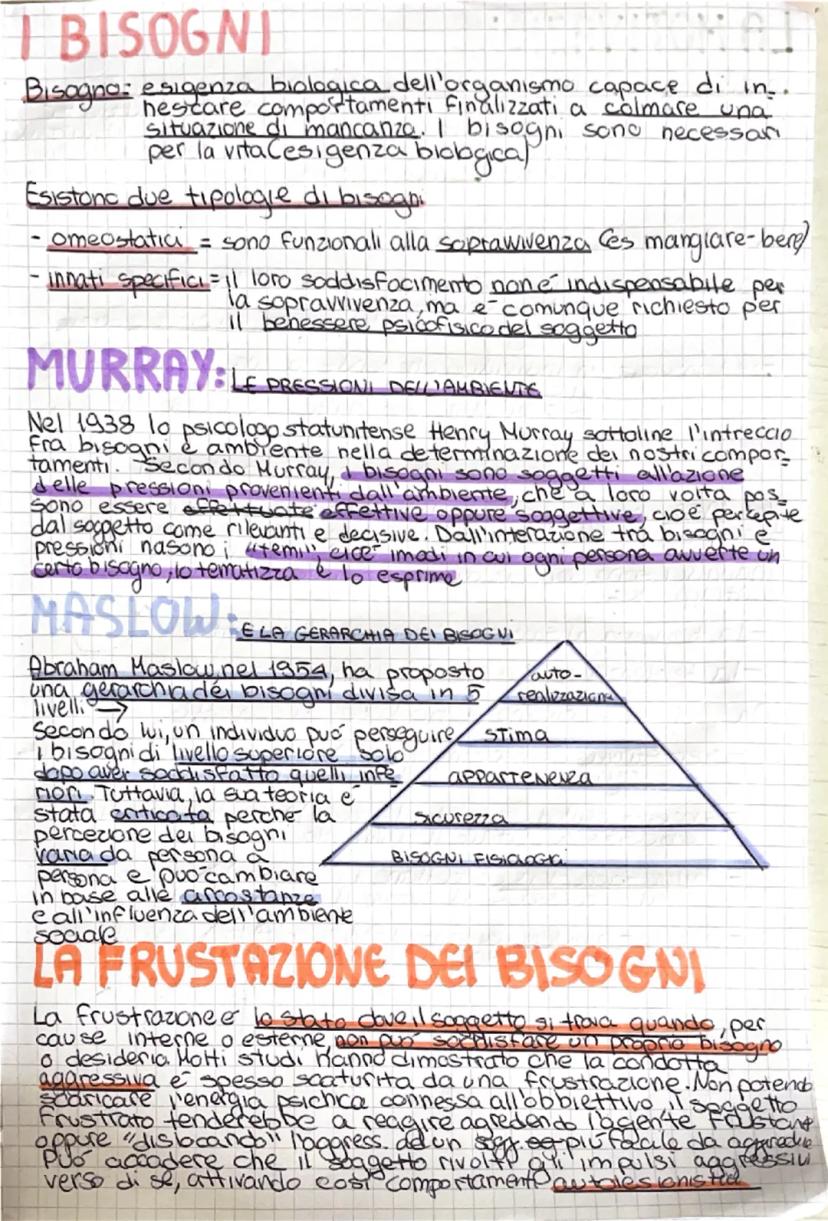 I BISOGNI
Bisogno: esigenza biologica dell'organismo capace di in-
nescare comportamenti finalizzati a colmare una
situazione di mancanza. I bisogni sono necessari
per la vita (esigenza biologica)
Esistono due tipologie di bisogni
- omeostatici = sono funzionali alla sopravvivenza (es mangiare-bere)
- innati specifici = il loro soddisfacimento non é indispensabile per
la sopravvivenza, ma é comunque richiesto per
il benessere psicofisico del soggetto
MURRAY: LE PRESSIONI DELL'AMBIENTE
Nel 1938 lo psicologo statunitense Henry Murray sottoline l'intreccio
fra bisogni e ambiente nella determinazione dei nostri compor-
tamenti. Secondo Murray, i bisogni sono soggetti all'azione
delle pressioni provenienti dall'ambiente, che a loro volta pos-
sono essere effettuate effettive oppure soggettive, cioé percepite
dal soggetto come rilevanti e decisive. Dall'interazione tra bisogni e
pressioni nasono i "temi", cioé i modi in cui ogni persona avverte un
certo bisogno, lo tematizza e lo esprime
MASLOW: E LA GERARCHIA DEI BISOGNI
Abraham Maslow, nel 1954, ha proposto
una gerarchia dei bisogni divisa in 5
livelli →
Secondo lui, un individuo puó perseguire
i bisogni di livello superiore solo
dopo aver soddisfatto quelli infe
riori. Tuttavia, la sua teoria é
stata criticata perché la
percezione dei bisogni
varia da persona a
persona e puó cambiare
in base alle circostanze
e all'influenza dell'ambiente
sociale
auto-
realizzazione
stima
appartenenza
sicurezza
BISOGNI FISIOLOGICI
LA FRUSTAZIONE DEI BISOGNI
La frustrazione é lo stato dove il soggetto si trova quando, per
cause interne o esterne non puó soddisfare un proprio bisogno
o desiderio. Molti studi hanno dimostrato che la condotta
aggressiva é spesso scaturita da una frustrazione. Non potendo
scaricare l'energia psichica connessa all'obbiettivo, il soggetto
frustrato tenderebbe a reagire agredendo l'agente frustante
oppure "dislocando" l'aggress. ad un sogg. piú facile da aggredire
Puó accadere che il soggetto rivolti gli impulsi aggressivi
verso di sé, attivando cosí comportamenti autolesionistici